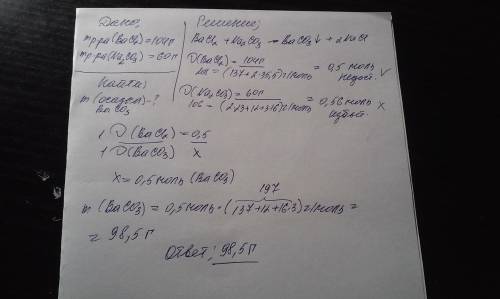 Дано:
m р-ра (BaCl₂) = 104г
m р-ра (Na₂CO₃) = 60г
Найти:
m (осадка) - ?
BaCO₃
Решение:
BaCl₂ + Na₂CO₃ → BaCO₃↓ + 2NaCl
ν(BaCl₂) = 104г / (137+2·35,5) г/моль = 0,5 моль
недост. ✓
ν(Na₂CO₃) = 60г / (2·23+12+3·16) г/моль = 0,56 моль
106 избыт. X
1 ν(BaCl₂) = 0,5
1 ν(BaCO₃) X
X = 0,5 моль (BaCO₃)
197
m (BaCO₃) = 0,5 моль · (137+12+16·3) г/моль =
= 98,5 г
Ответ: 98,5 г